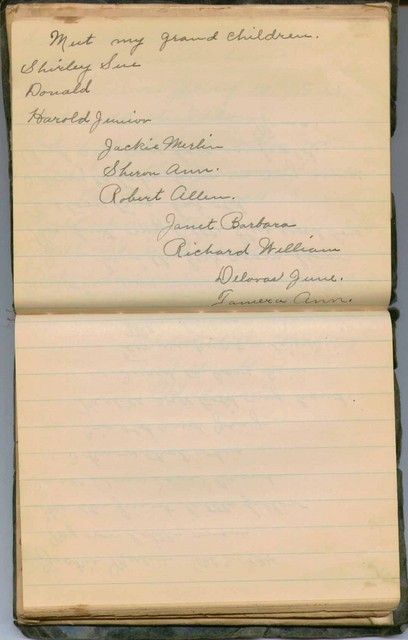 Meet my grand children.
Shirley Sue
Donald
Harold Junior
Jackie Merlin
Sharon Ann.
Robert Allen.
Janet Barbara
Richard William
Delores June.
Tamera Ann.